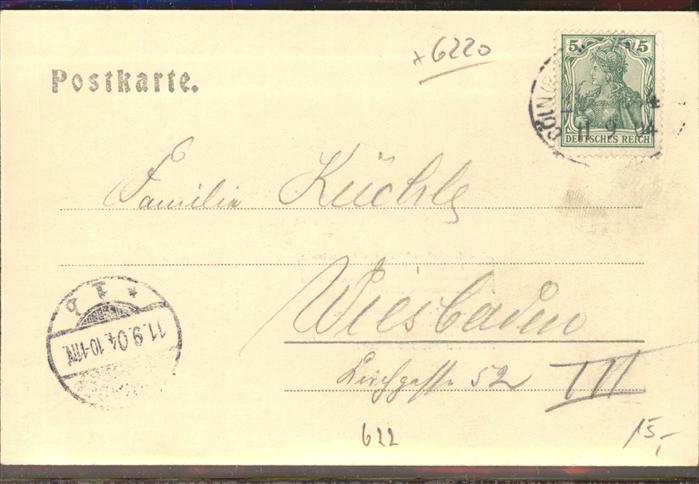 Postkarte.
*6220
5 5
DEUTSCHES REICH
CÖLN
11 9 04
Familie Küchle
Wiesbaden
Kirchgasse 52 III
11.9.04. 10-11N
622
15,-